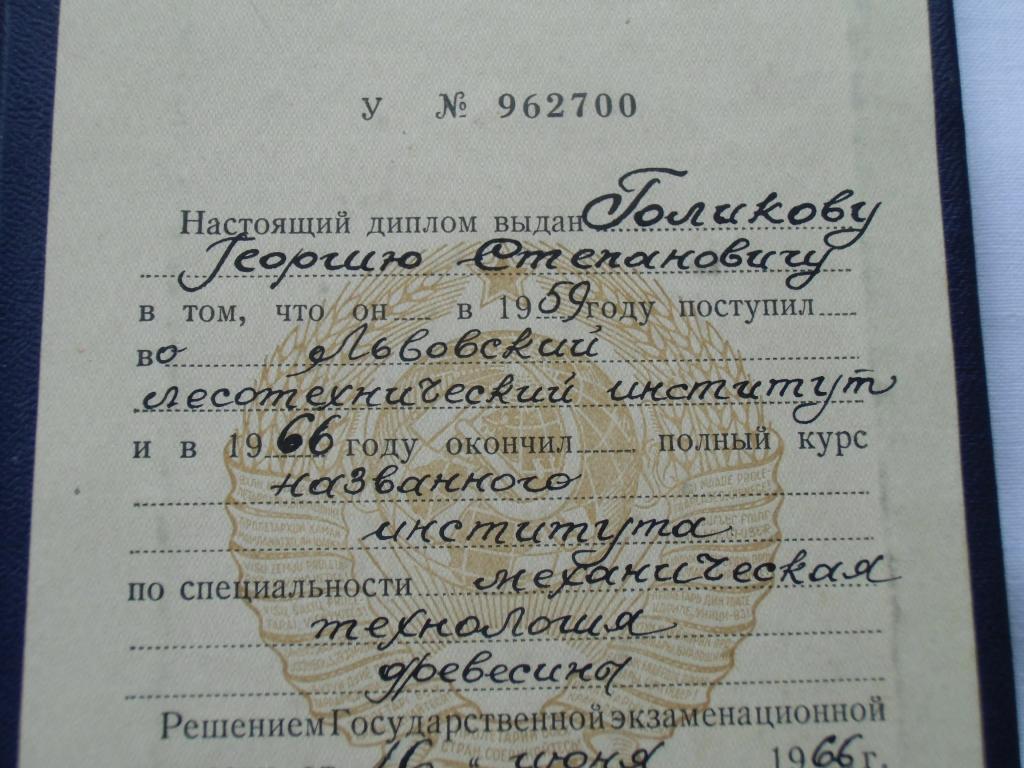 У № 962700
Настоящий диплом выдан Голикову
Георгию Степановичу
в том, что он в 1959 году поступил
во Львовский
лесотехнический институт
и в 1966 году окончил полный курс
названного
института
по специальности механическая
технология
древесины
Решением Государственной экзаменационной
июня 1966 г.